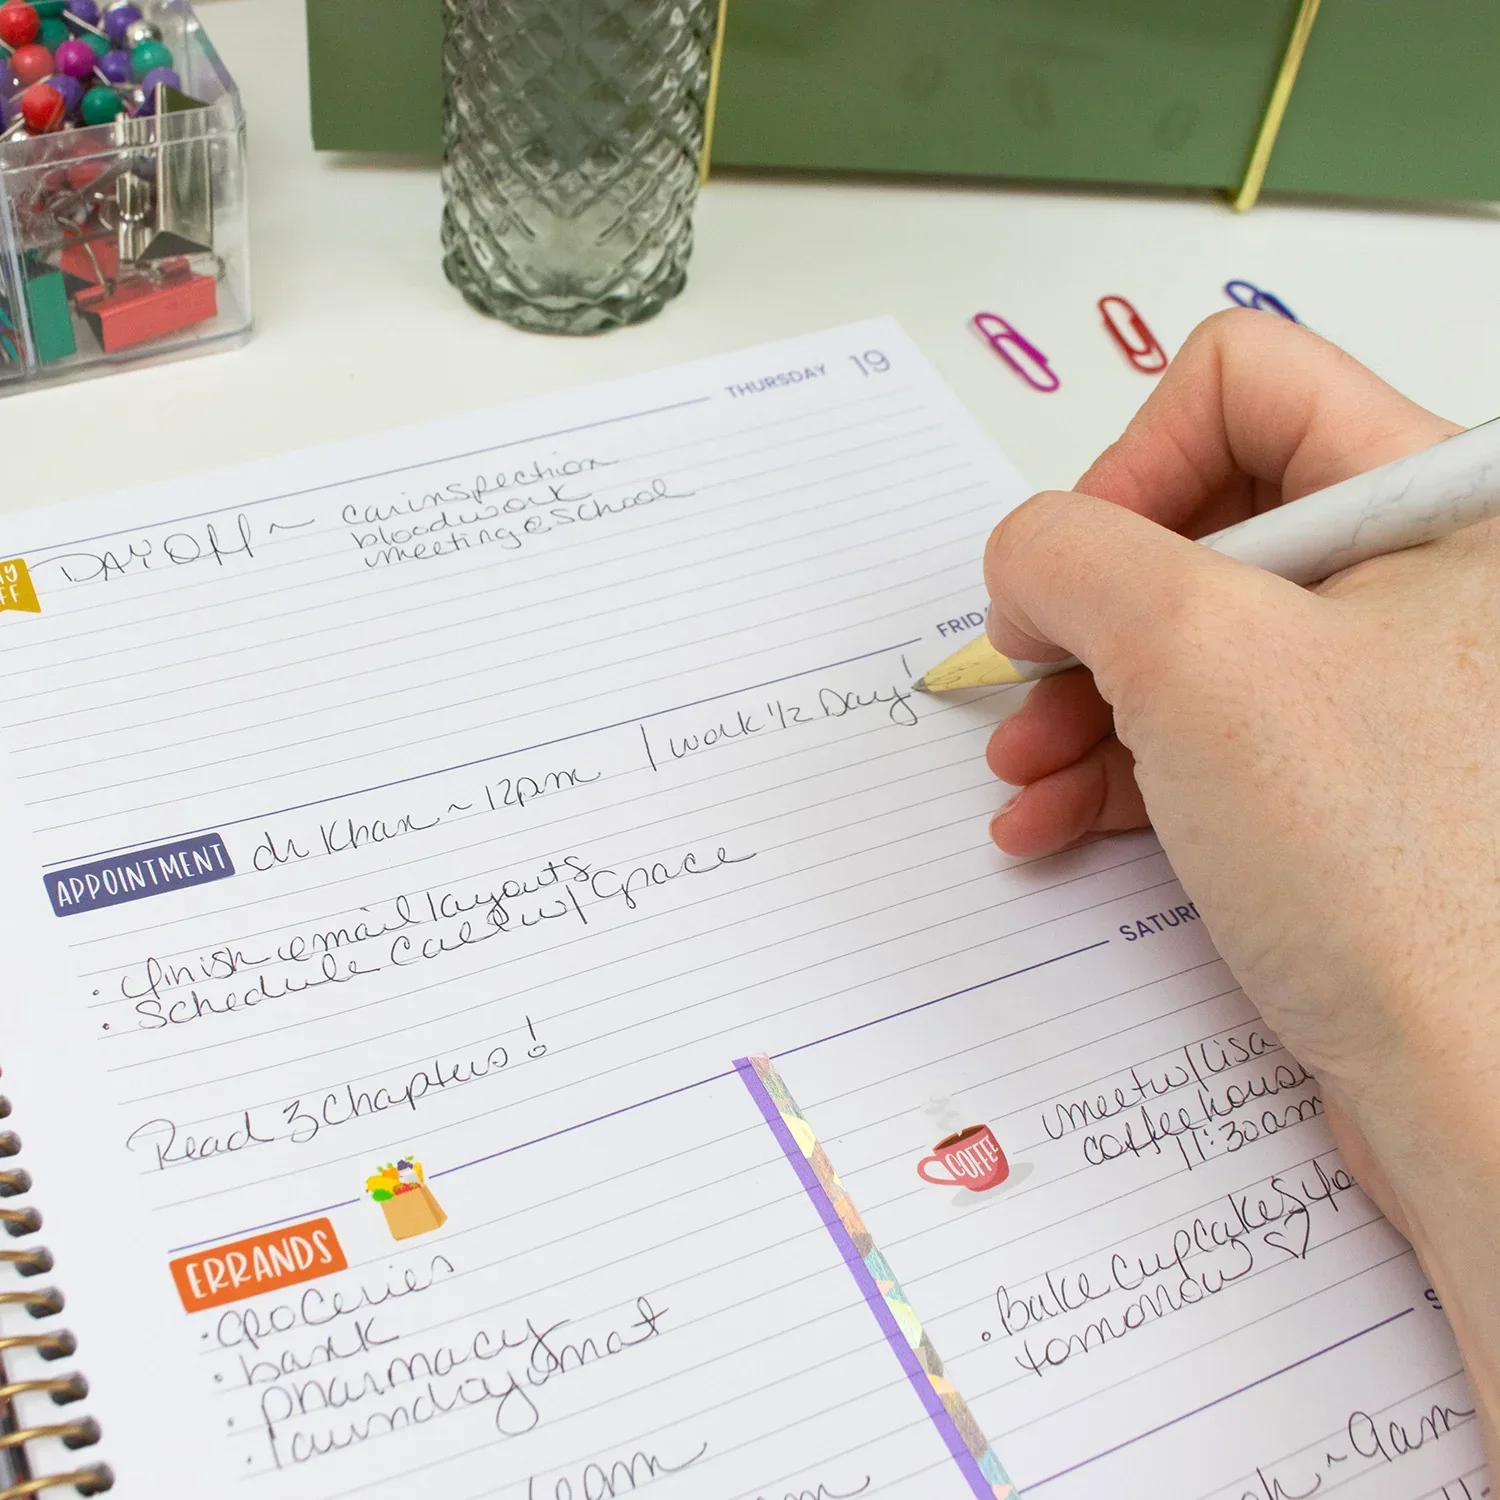 THURSDAY 19
DAY OFF ~ car inspection
bloodwork
meeting @ School
FF
FRID
APPOINTMENT dr Khan ~ 12pm / work 1/2 Day!
• finish email layouts
• Schedule Call w/ Grace
Read 3 Chapters!
SATUR
COFFEE
meet w/ Lisa
coffee hous
11:30am
• Bake Cupcakes fo
tomorrow ♡
ERRANDS
• groceries
• bank
• pharmacy
• laundrymat
S
~ 9am